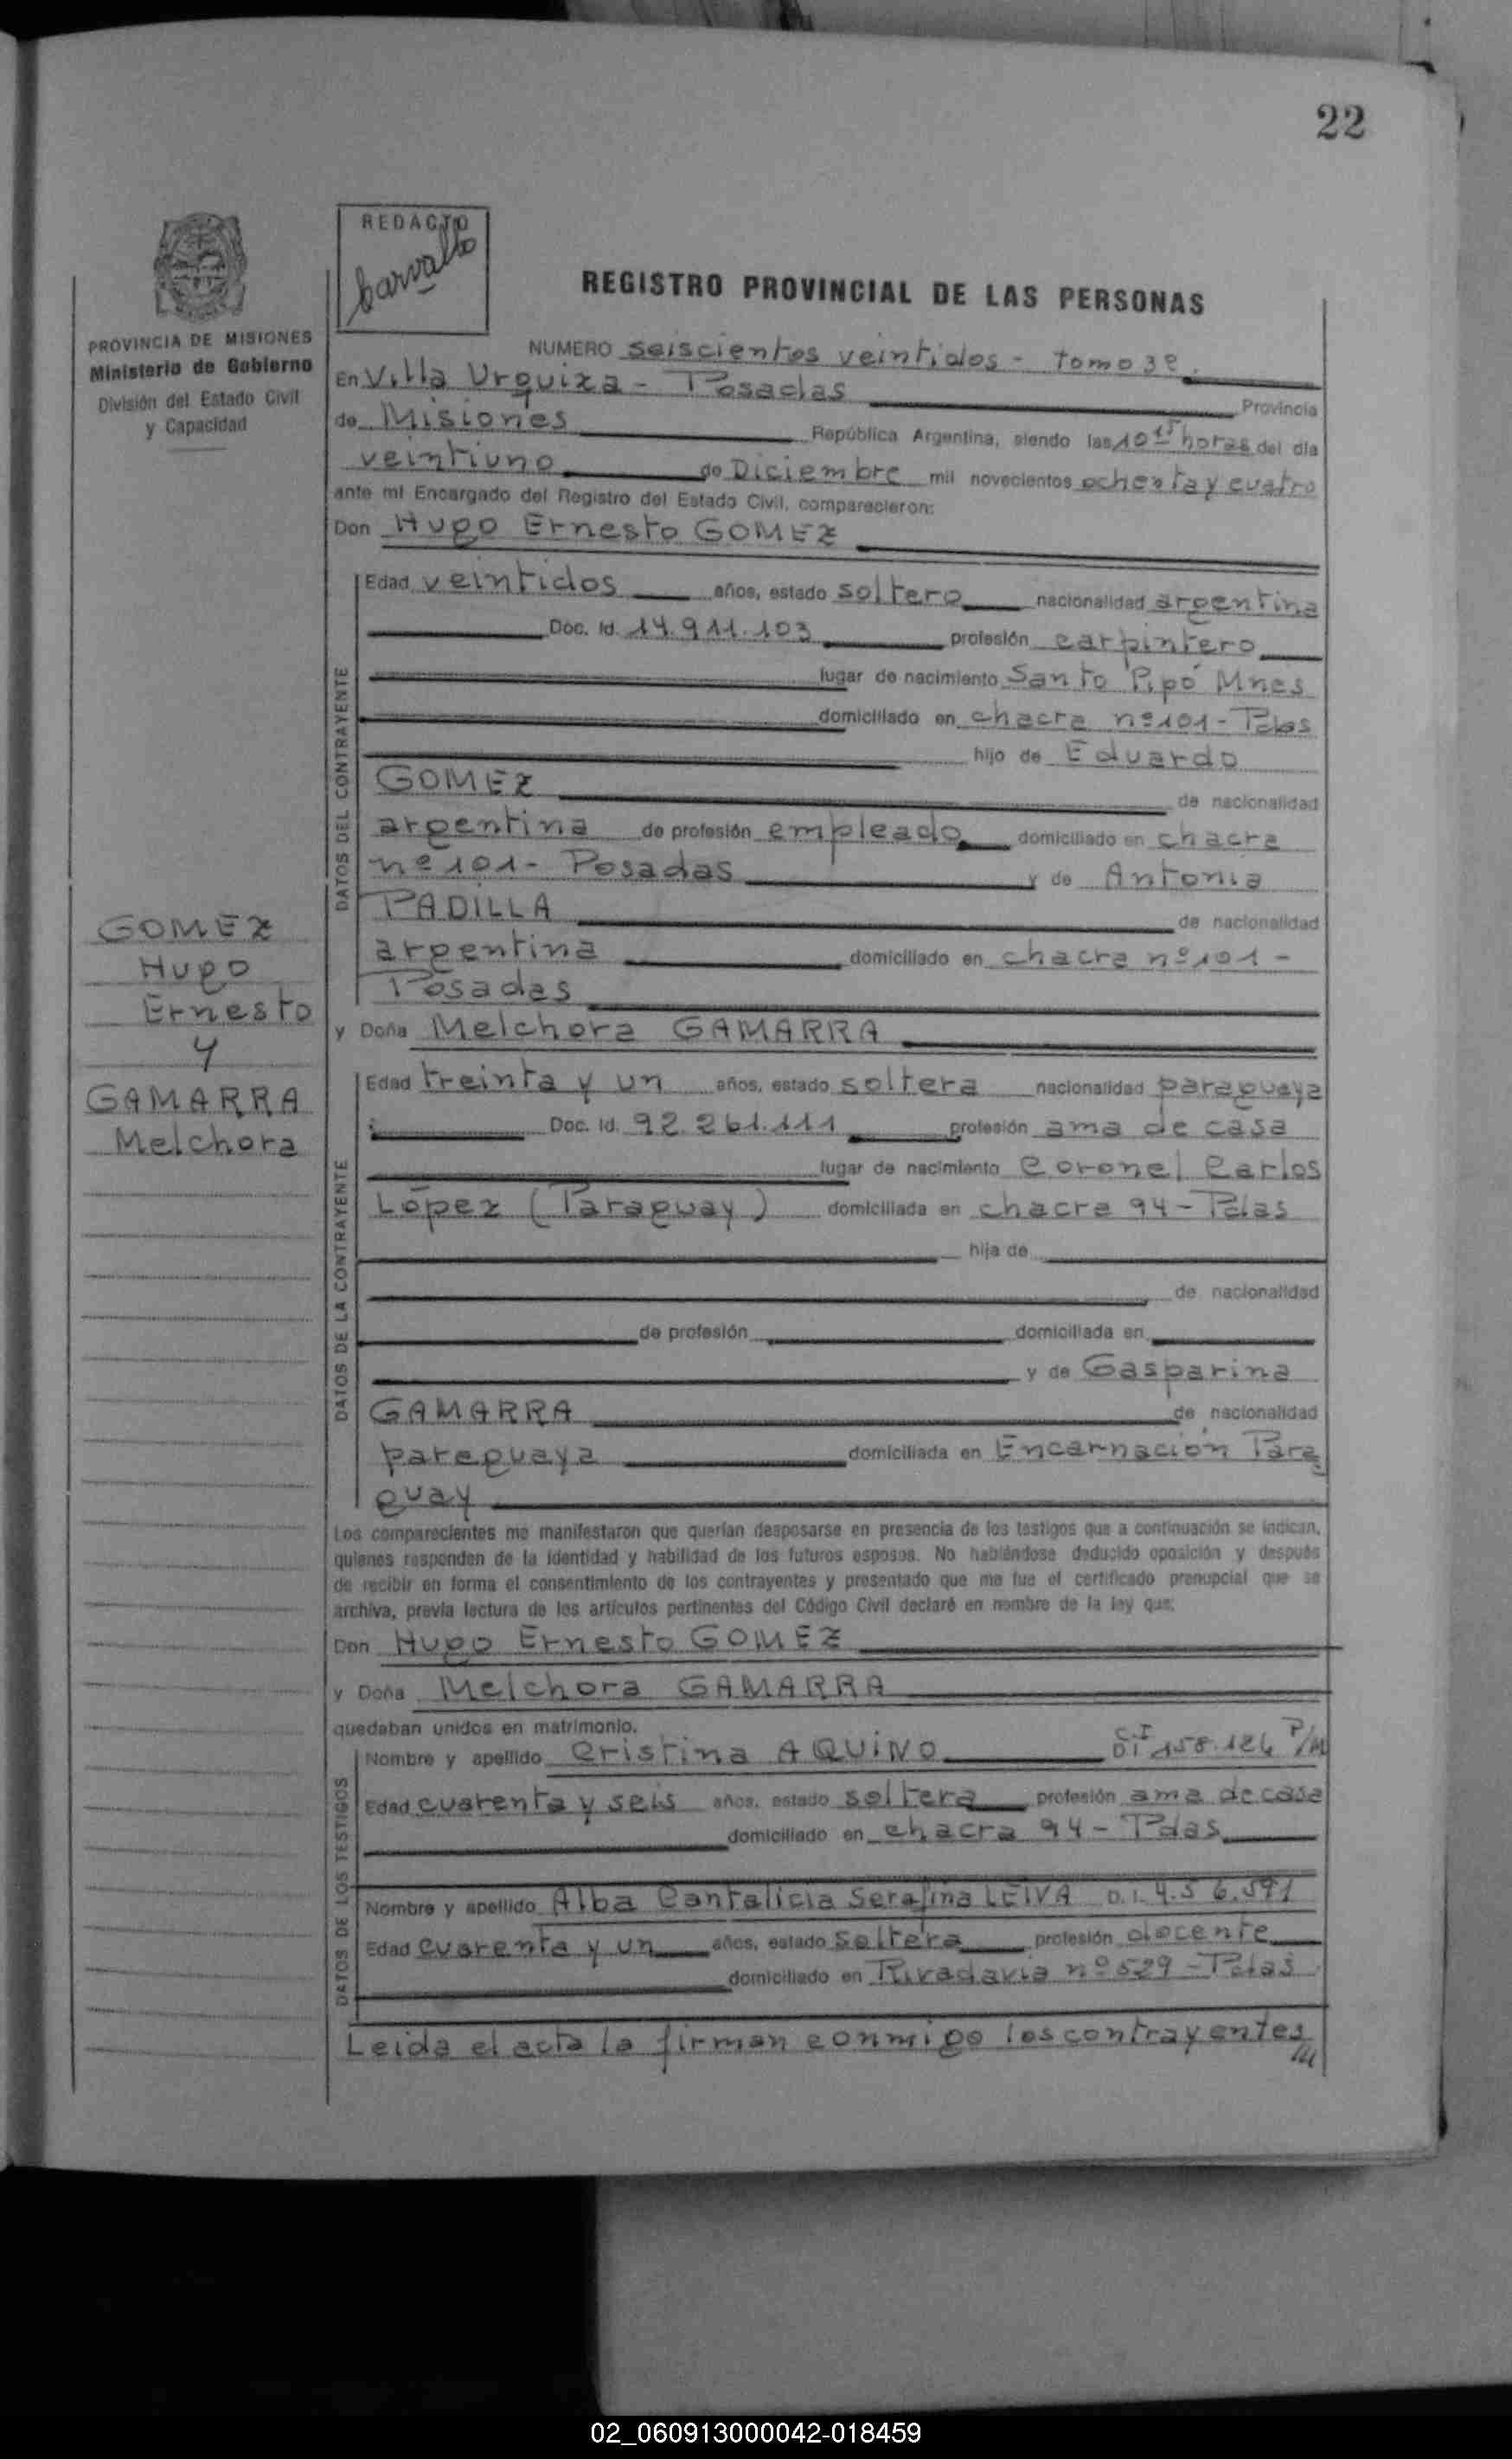 22
REDACTO
Carvallo
REGISTRO PROVINCIAL DE LAS PERSONAS
PROVINCIA DE MISIONES
Ministerio de Gobierno
División del Estado Civil
y Capacidad
NUMERO seiscientos veintidos - Tomo 3º.
En Villa Urquiza - Posadas Provincia
de Misiones República Argentina, siendo las 10 15 horas del día
veintiuno de Diciembre mil novecientos ochenta y cuatro
ante mí Encargado del Registro del Estado Civil, comparecieron:
Don Hugo Ernesto GOMEZ
DATOS DEL CONTRAYENTE
Edad veintidos años, estado soltero nacionalidad argentina
Doc. Id. 14.911.103 profesión carpintero
lugar de nacimiento Santo Pipó Mnes
domiciliado en chacra nº 101 - Pdas
hijo de Eduardo
GOMEZ de nacionalidad
argentina de profesión empleado domiciliado en chacra
nº 101 - Posadas y de Antonia
PADILLA de nacionalidad
argentina domiciliado en chacra nº 101 -
Posadas
GOMEZ
Hugo
Ernesto
y
GAMARRA
Melchora
y Doña Melchora GAMARRA
DATOS DE LA CONTRAYENTE
Edad treinta y un años, estado soltera nacionalidad paraguaya
Doc. Id. 92.261.111 profesión ama de casa
lugar de nacimiento Coronel Carlos
López (Paraguay) domiciliada en chacra 94 - Pdas
hija de
de nacionalidad
de profesión domiciliada en
y de Gasparina
GAMARRA de nacionalidad
paraguaya domiciliada en Encarnación Para
guay
Los comparecientes me manifestaron que querían desposarse en presencia de los testigos que a continuación se indican,
quienes responden de la identidad y habilidad de los futuros esposos. No habiéndose deducido oposición y después
de recibir en forma el consentimiento de los contrayentes y presentado que me fue el certificado prenupcial que se
archiva, previa lectura de los artículos pertinentes del Código Civil declaré en nombre de la ley que:
Don Hugo Ernesto GOMEZ
y Doña Melchora GAMARRA
quedaban unidos en matrimonio.
DATOS DE LOS TESTIGOS
Nombre y apellido Cristina AQUINO C.I 158.124 P/M
Edad cuarenta y seis años, estado soltera profesión ama de casa
domiciliado en chacra 94 - Pdas
Nombre y apellido Alba Cantalicia Serafina LEIVA D.I. 4.586.591
Edad cuarenta y un años, estado soltera profesión docente
domiciliado en Rivadavia nº 529 - Pdas
Leida el acta la firman conmigo los contrayentes
///
02_060913000042-018459